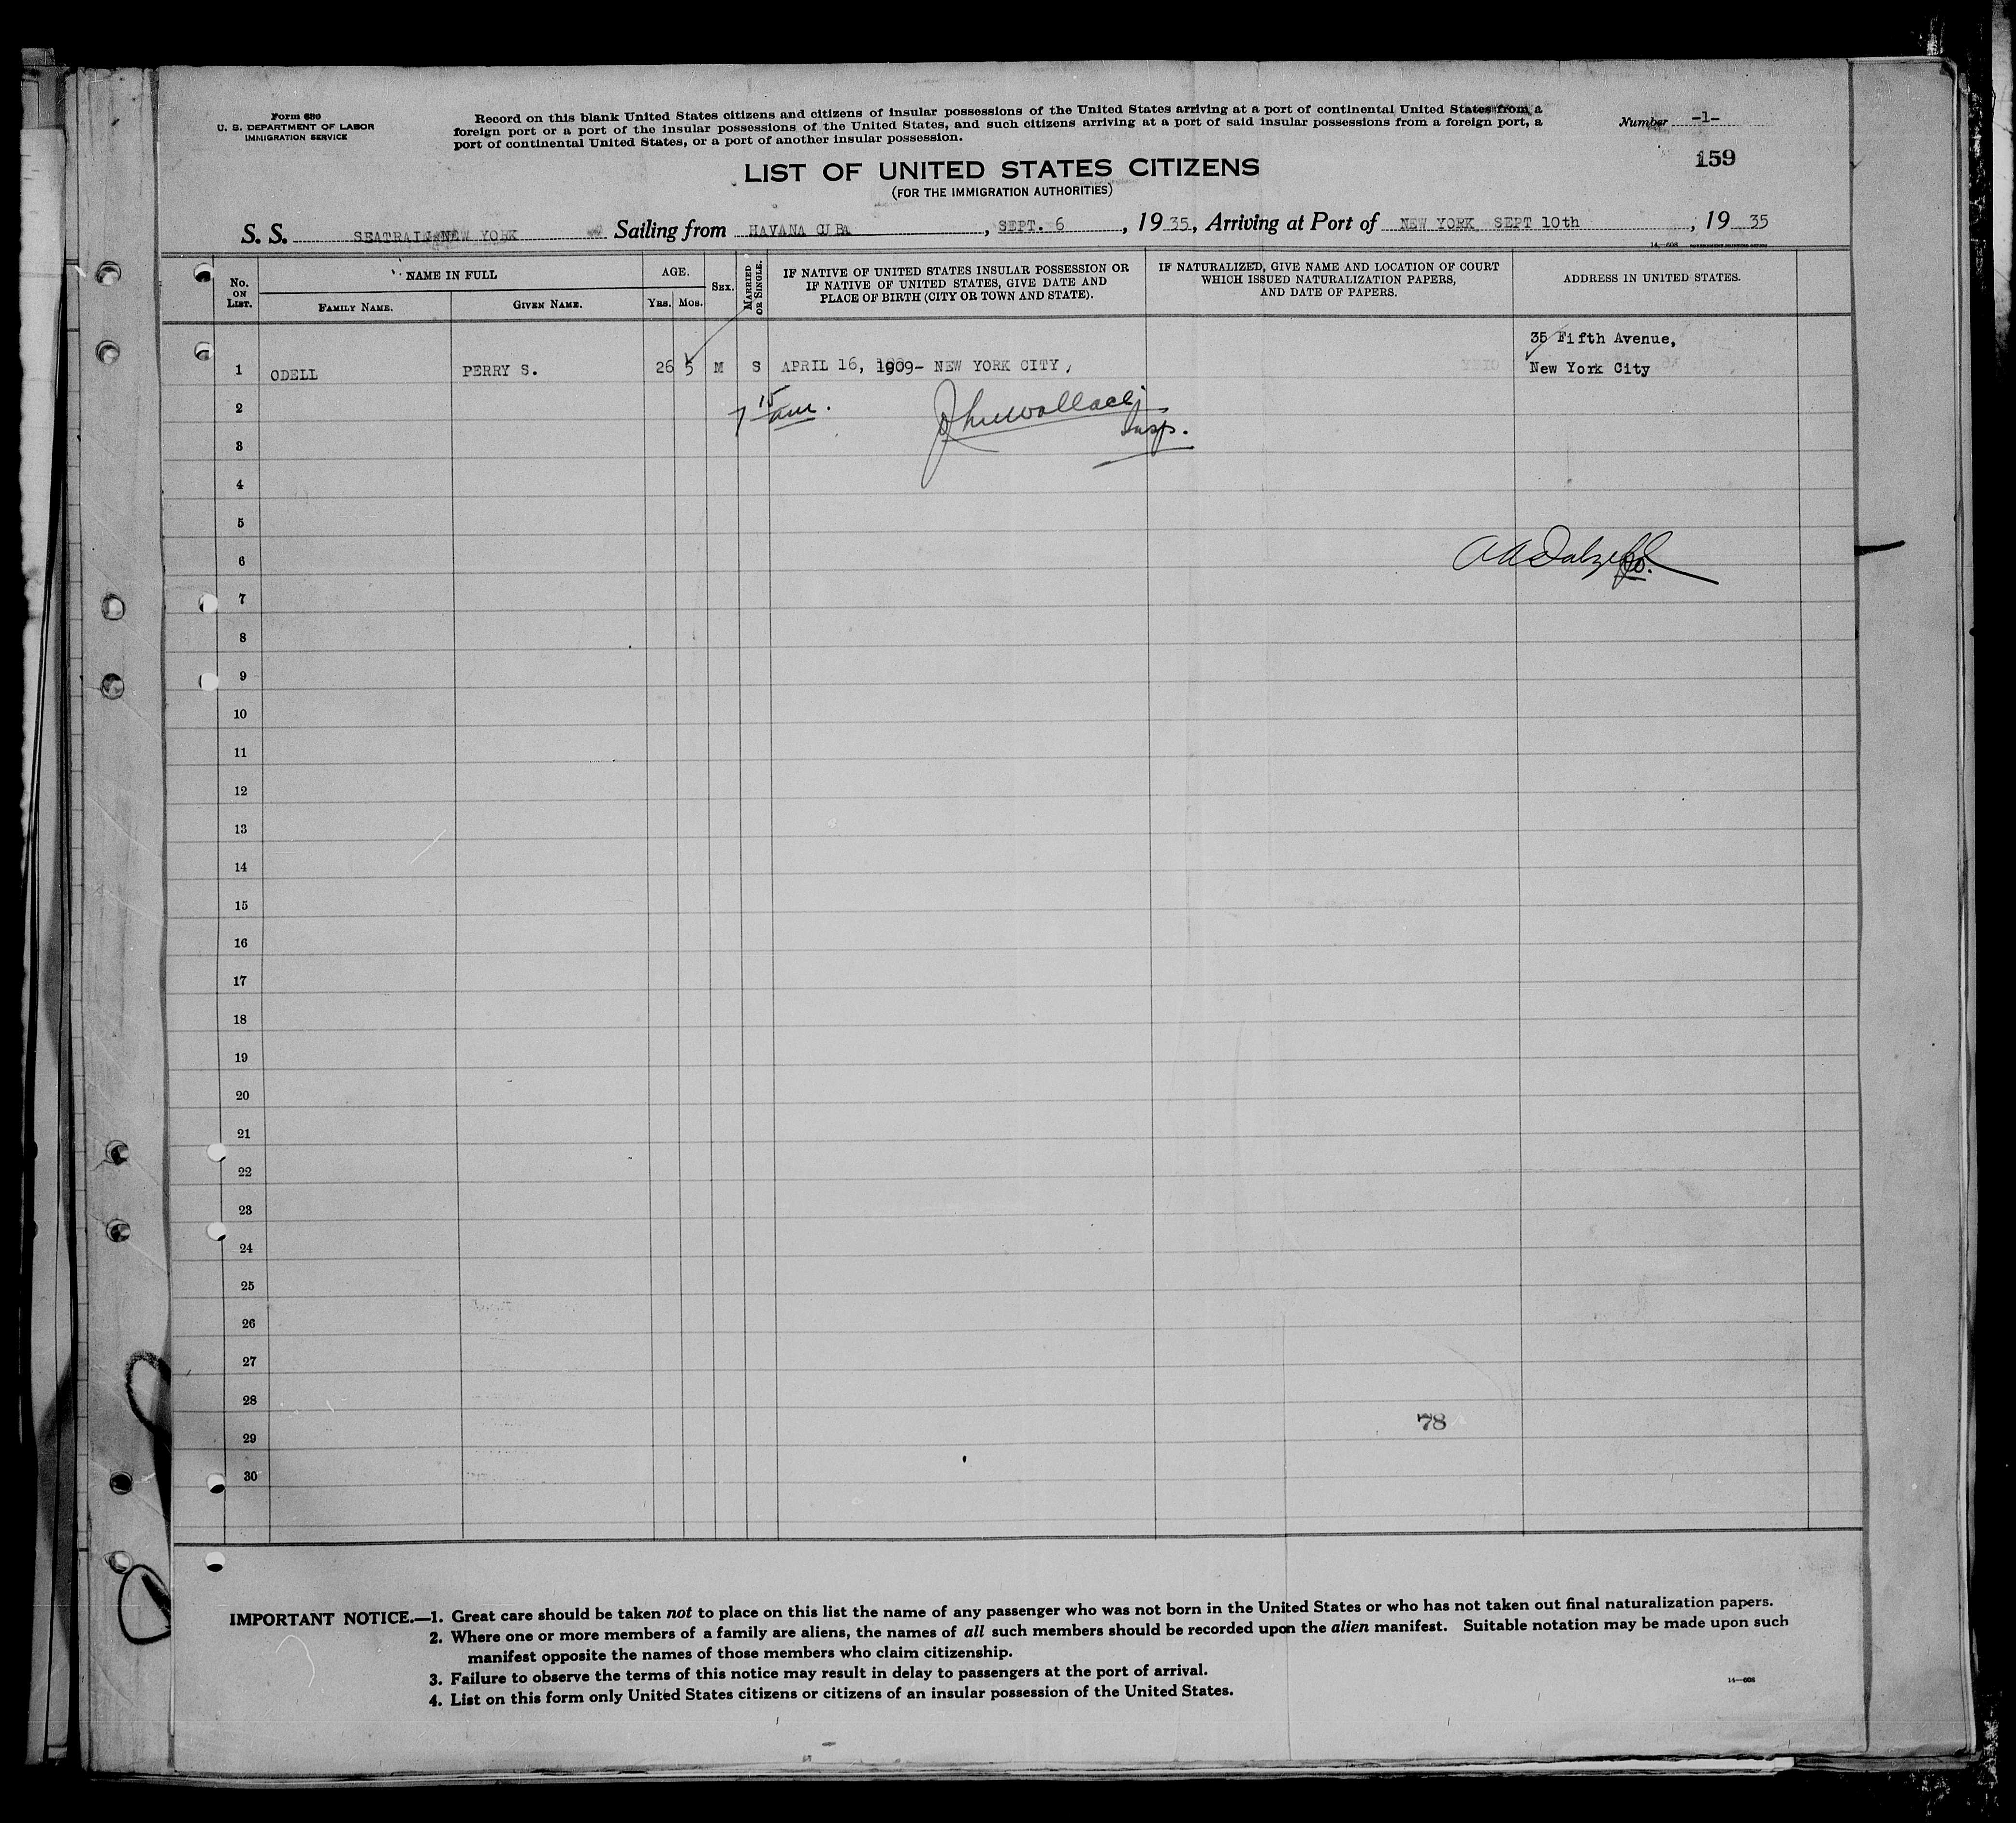 Form 630
U. S. DEPARTMENT OF LABOR
IMMIGRATION SERVICE
Record on this blank United States citizens and citizens of insular possessions of the United States arriving at a port of continental United States from a
foreign port or a port of the insular possessions of the United States, and such citizens arriving at a port of said insular possessions from a foreign port, a
port of continental United States, or a port of another insular possession.
Number -1-
159
LIST OF UNITED STATES CITIZENS
(FOR THE IMMIGRATION AUTHORITIES)
S. S. SEATRAIN NEW YORK Sailing from HAVANA CUBA, SEPT. 6, 19 35, Arriving at Port of NEW YORK SEPT 10th, 19 35
14—608 GOVERNMENT PRINTING OFFICE
No. ON LIST.
NAME IN FULL
FAMILY NAME.
GIVEN NAME.
AGE.
YRS. MOS.
SEX.
MARRIED OR SINGLE.
IF NATIVE OF UNITED STATES INSULAR POSSESSION OR
IF NATIVE OF UNITED STATES, GIVE DATE AND
PLACE OF BIRTH (CITY OR TOWN AND STATE).
IF NATURALIZED, GIVE NAME AND LOCATION OF COURT
WHICH ISSUED NATURALIZATION PAPERS,
AND DATE OF PAPERS.
ADDRESS IN UNITED STATES.
35 Fifth Avenue,
1 ODELL PERRY S. 26 5 M S APRIL 16, 1909- NEW YORK CITY, New York City
2 7 15 am. John Wallace
3 Insp.
4
5
6
7
8
9
10
11
12
13
14
15
16
17
18
19
20
21
22
23
24
25
26
27
28
78
29
30
IMPORTANT NOTICE.—1. Great care should be taken not to place on this list the name of any passenger who was not born in the United States or who has not taken out final naturalization papers.
2. Where one or more members of a family are aliens, the names of all such members should be recorded upon the alien manifest. Suitable notation may be made upon such
manifest opposite the names of those members who claim citizenship.
3. Failure to observe the terms of this notice may result in delay to passengers at the port of arrival.
4. List on this form only United States citizens or citizens of an insular possession of the United States.
14—608